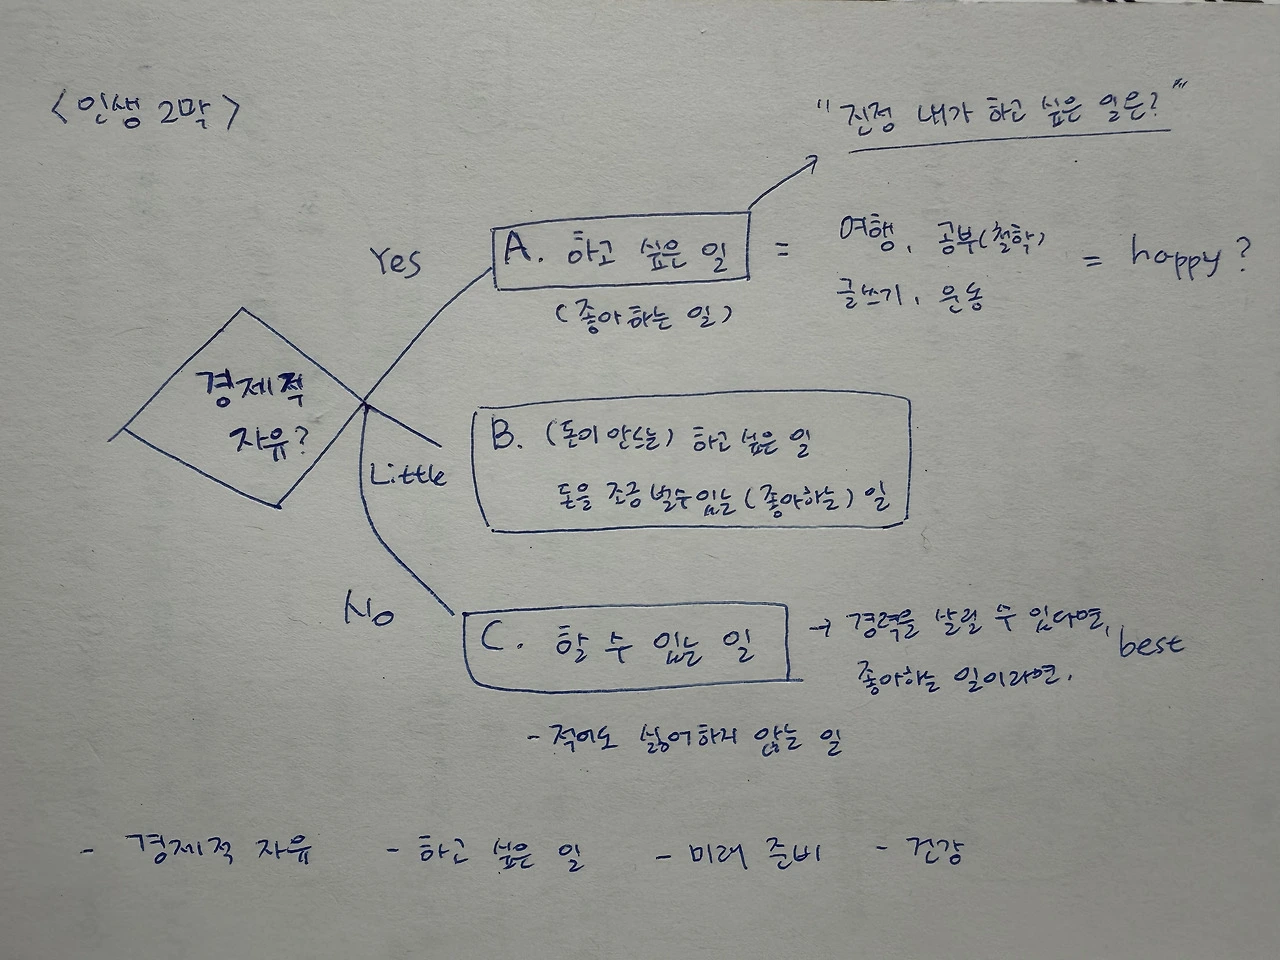 <인생 2막>
"진정 내가 하고 싶은 일은?"
Yes
A. 하고 싶은 일
(좋아하는 일)
=
여행, 공부(철학)
글쓰기, 운동
= happy?
경제적
자유?
Little
B. (돈이 안드는) 하고 싶은 일
돈을 조금 벌수있는 (좋아하는) 일
No
C. 할 수 있는 일
→ 경력을 살릴 수 있다면,
좋아하는 일이라면.
best
- 적어도 싫어하지 않는 일
- 경제적 자유 - 하고 싶은 일 - 미래 준비 - 건강